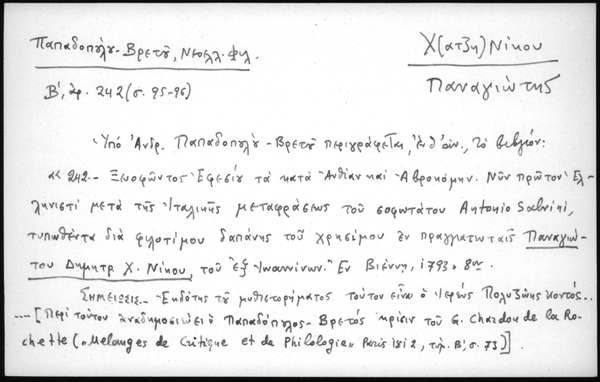 Παπαδοπύλυ-Βρετῦ, Νεοελλ. Φιλ.
Χ(ατζη)Νίκου
Παναγιώτης
Β', ἀρ. 242 (σ. 95-96)
Ὑπό Ἀνδρ. Παπαδοπύλυ-Βρετῦ περιγράφεται, τό βιβλίον:
«242.- Ξενοφῶντος Ἐφεσίυ τά κατά Ἀνθίαν καί Ἀβροκόμην. Νῦν πρῶτον Ἑλ-
ληνιστί μετά τῆς Ἰταλικῆς μεταφράσεως τοῦ σοφωτάτου Antonio Salvini,
τυπωθέντα διά φιλοτίμου δαπάνης τοῦ χρησίμου ἐν πραγματωταῖς Παναγιώ-
του Δημητρ. Χ. Νίκου, τοῦ ἐξ Ἰωαννίνων. Ἐν Βιέννῃ, 1793 » 8ον.
Σημείωσις.- Ἐκδότης τῦ μυθιστορήματος τούτου εἶναι ὁ ἱερεύς Πολυζώης Κοντός...
...[Περί τούτου ἀναδημοσιεύει ὁ Παπαδόπυλος-Βρετός κρίσιν τοῦ G. Chardon de la Ro-
chette («Melanges de Critique et de Philologie» Paris 1812, τόμ. Β', σ. 73)]